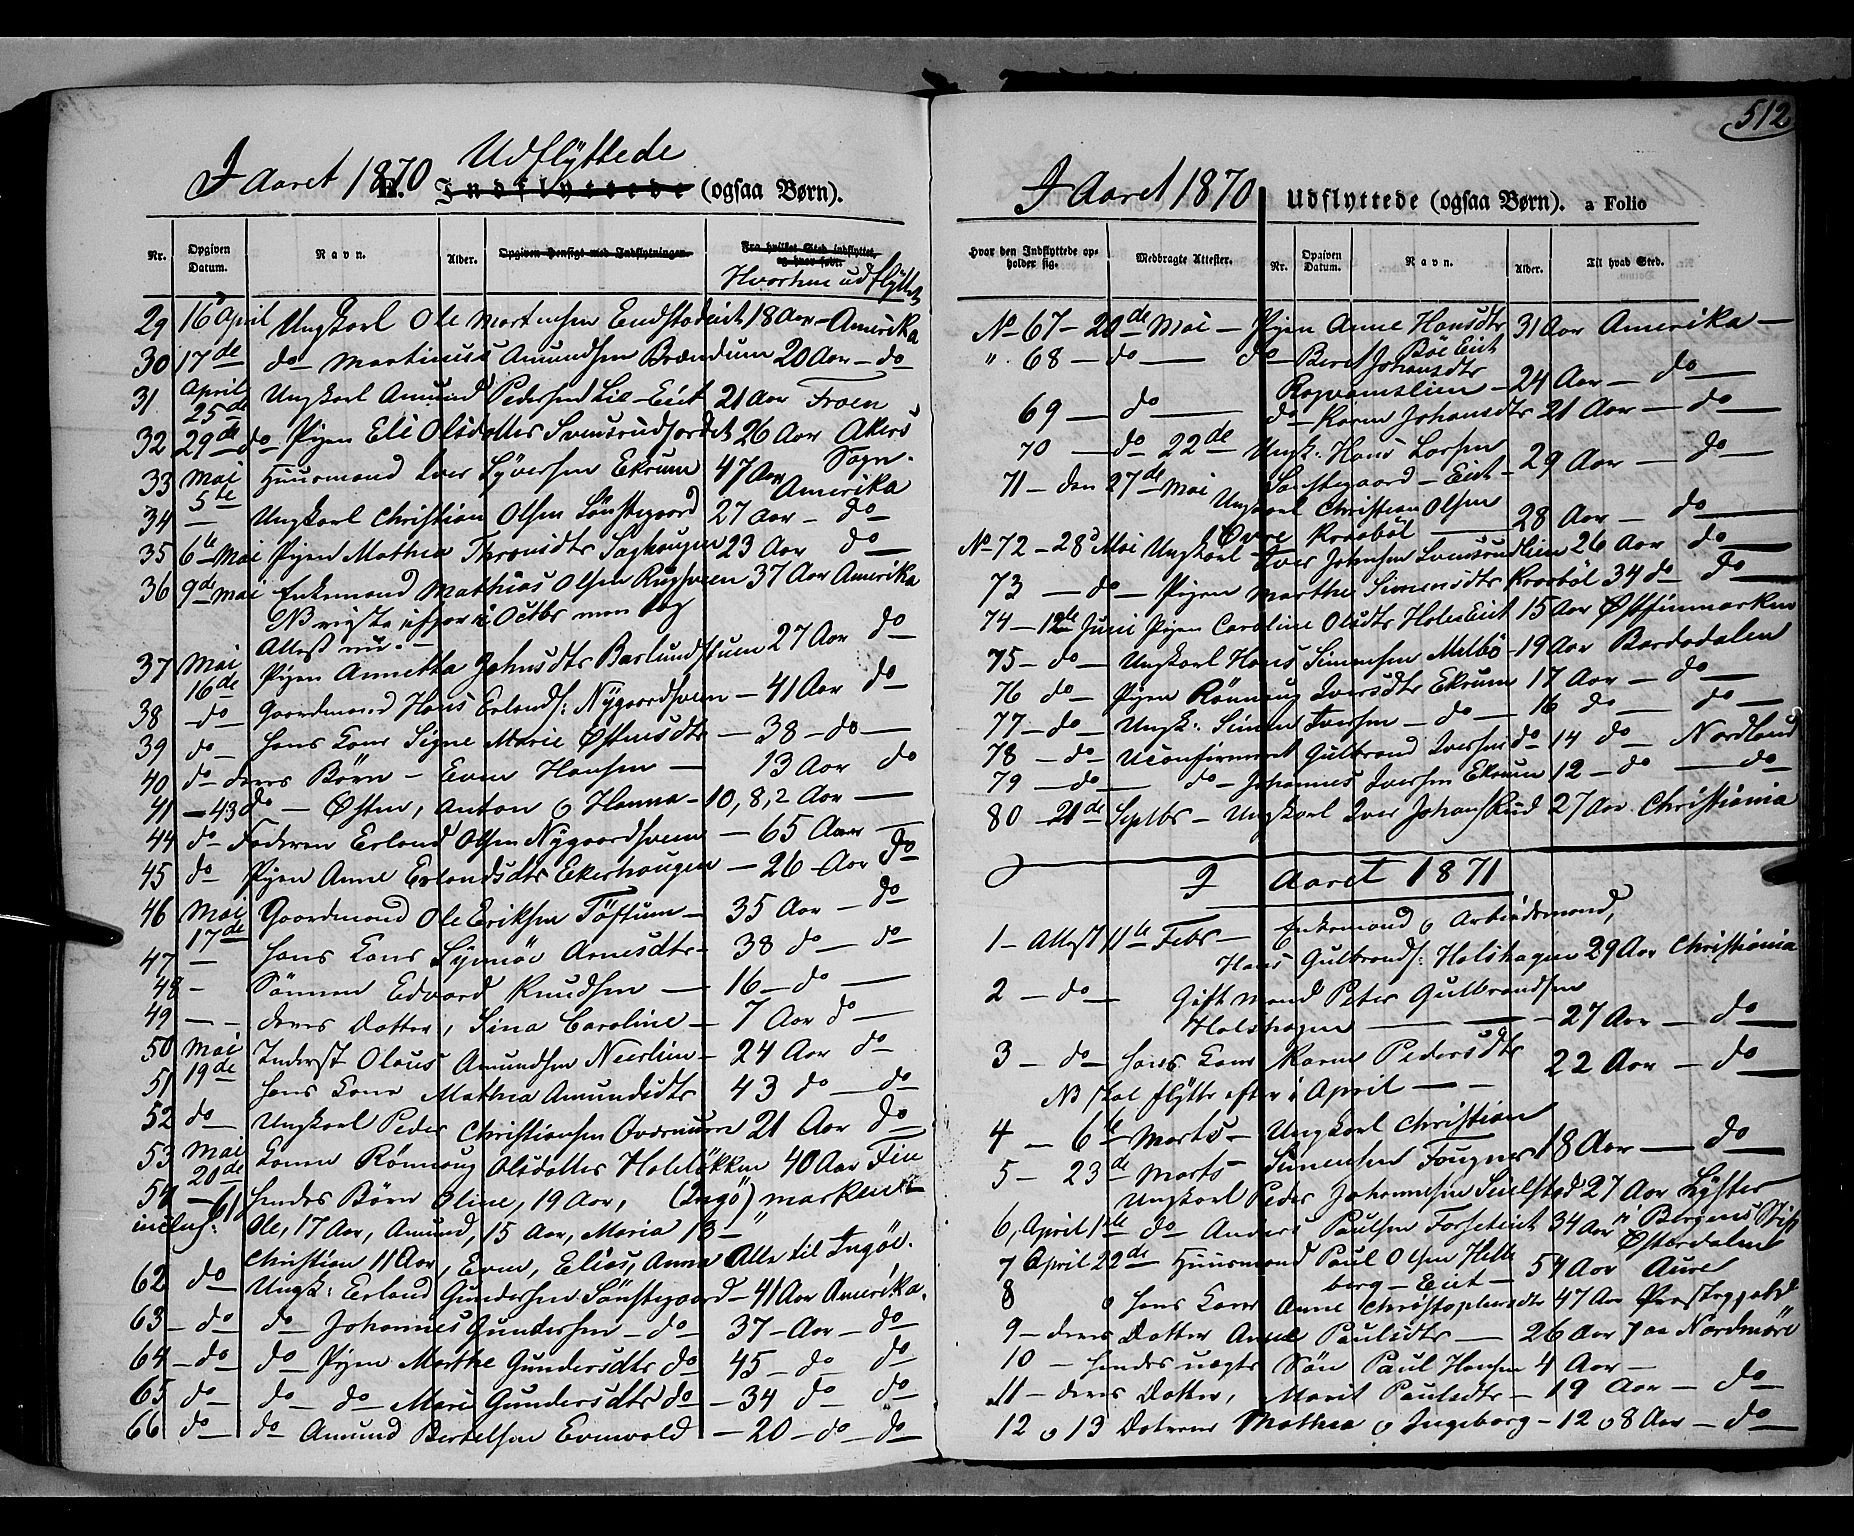 I Aaret 1870 Udflyttede
E. Indflyttede (ogsaa Børn).
Nr. Opgiven Datum. Navn. Alder. Opgiven Hensigt med Indflytningen. Fra hvilket Sted indflyttet, og hvor født.
Hvorhen udflyttet
29 16 April Ungkarl Ole Martinsen Endstadeiet 18 Aar - Amerika
30 17de do Martinus Amundsen Brændum 20 Aar - do
31 April 25de Ungkarl Amund Pedersen Lie-Eiet 21 Aar Froen
32 29de do Pigen Eli Olsdatter Svensrudjordet 26 Aar Akers Sogn.
33 Mai 5te Huusmand Iver Syversen Ekrum 47 Aar Amerika
34 — Ungkarl Christian Olsen Sønstegaard 27 Aar - do
35 6te Mai Pigen Mathea Thronsdtr Saghaugen 23 Aar do
36 9de Mai Enkemand Mathias Olsen 37 Aar Amerika
NB reiste ifjor i Octbr men tog
Attest nu. -
37 Mai 16de Pigen Annetha Johnsdtr Barlundstuen 27 Aar do
38 do Gaardmand Hans Erlands: Nygaardsveen - 41 Aar do
39 do hans Kone Signe Marie Østensdtr - 38 - do
40 do deres Børn - Even Hansen - 13 Aar do
41 - 43 do - Østen, Anton o Hanna - 10, 8, 2 Aar -
44 do Faderen Erland Olsen Nygaardsveen - 65 Aar -
45 do Pigen Anne Erlandsdtr Ekerhaugen - 26 Aar do
46 Mai 17de Gaardmand Ole Eriksen Tøftum - 35 Aar - do
47 — hans Kone Synnøv Arnesdtr - 38 do - do
48 - Sønnen Edvard Knudsen - 16 - do -
49 - - deres Datter, Sina Caroline - 7 Aar do -
50 Mai 19de Inderst Olaus Amundsen Neerlien - 24 Aar do
51 hans Kone Mathea Amundsdtr 43 do - do
52 do Ungkarl Peder Christiansen Overnuen 21 Aar do
53 Mai 20de Konen Rønnaug Olsdatter Holeløkken 40 Aar Fin
54 - 61 hendes Børn Oline, 19 Aar, (Ingø) marken -
inclus: Ole, 17 Aar, Amund, 15 Aar, Maria 13 - "
Christian 11 Aar, Even, Elias, Anna Alle til Ingøe.
62 do Ungk: Erland Gundersen Sønstegaard - 41 Aar Amerika.
63 - do do Johannes Gundersen - do - 37 - Aar - do
64 - do do Pigen Marthe Gundersdtr do 45 - do do
65 do do do Mari Gundersdtr do - 34 do do
66 do do Amund Bertelsen Evenvold - 20 - do - do
512
I Aaret 1870 Udflyttede (ogsaa Børn). a Folio
Hvor den Indflyttede opholder sig. Medbragte Attester. Nr. Opgiven Datum. Navn. Alder. Til hvad Sted.
No 67 - 20de Mai - Pigen Anne Hansdtr 31 Aar Amerika -
Bøe Eiet
" 68 - do - do - Beret Johansdtr
24 Aar - do
69 - do - do - Karen Johansdtr 21 Aar - do
70 - do 22de Ungk: Hans Larsen
Sønstegaard - Eiet - 29 Aar - do
71 - den 27de Mai Ungkarl Christian Olsen
Øvre Kraabøl - 28 Aar - do
No 72 - 28de Mai Ungkarl Iver Johnsen Svensrudlien 26 Aar do
73 - do - Pigen Marthe Simensdtr Kraabøl 34 do do
74 - 12te Juni Pigen Caroline Olsdtr Holeeiet 15 Aar Østfinmarken
75 - do - Ungkarl Hans Simensen Melbø - 19 Aar Bardodalen
76 do - Pigen Rønnaug Iversdtr Ekrum 17 Aar - do
77 - do - Ungk: Simen Iversen - do - 16 do - do
78 - do Uconfirmeret Gulbrand Iversen do 14 do Nordland
79 - do - do - Johannes Iversen Ekrum 12 - do - do
80 - 21de Septbr - Ungkarl Iver Johans: Rud 27 Aar. Christiania
I Aaret 1871
1 - Attest 11te Febr - Enkemand o Arbeidsmand,
Hans Gulbrands: Holshagen 29 Aar Christiania
2 - do - Gift Mand Peter Gulbrandsen
Holshagen - 27 Aar - do
3 - do - hans Kone Karen Pedersdtr 22 Aar - do
NB skal flytte efter i April - -
4 - 6te Marts - Ungkarl Christian
Simensen Fougner 18 Aar - do
5 - 23de Marts -
Ungkarl Peder Johannesen Seielstad 27 Aar Lyster
i Bergens Stift
6, April 1ste do Anders Paulsen Forseteiet 34 Aar Østerdalen
7 April 22de Huusmand Paul Olsen Hilleborg - Eiet - 54 Aar Aure
8 o hans Kone Anne Christophersdtr 47 Aar Præstegjæld
9 - deres Datter Anne Paulsdtr - 26 Aar paa Nordmøre
10 - hendes uægte Søn Paul Hansen 4 Aar -
11 - deres Datter, Marit Paulsdtr - 19 Aar - do
12 o 13 Døtrene Mathea o Ingeborg - 12 o 8 Aar - do